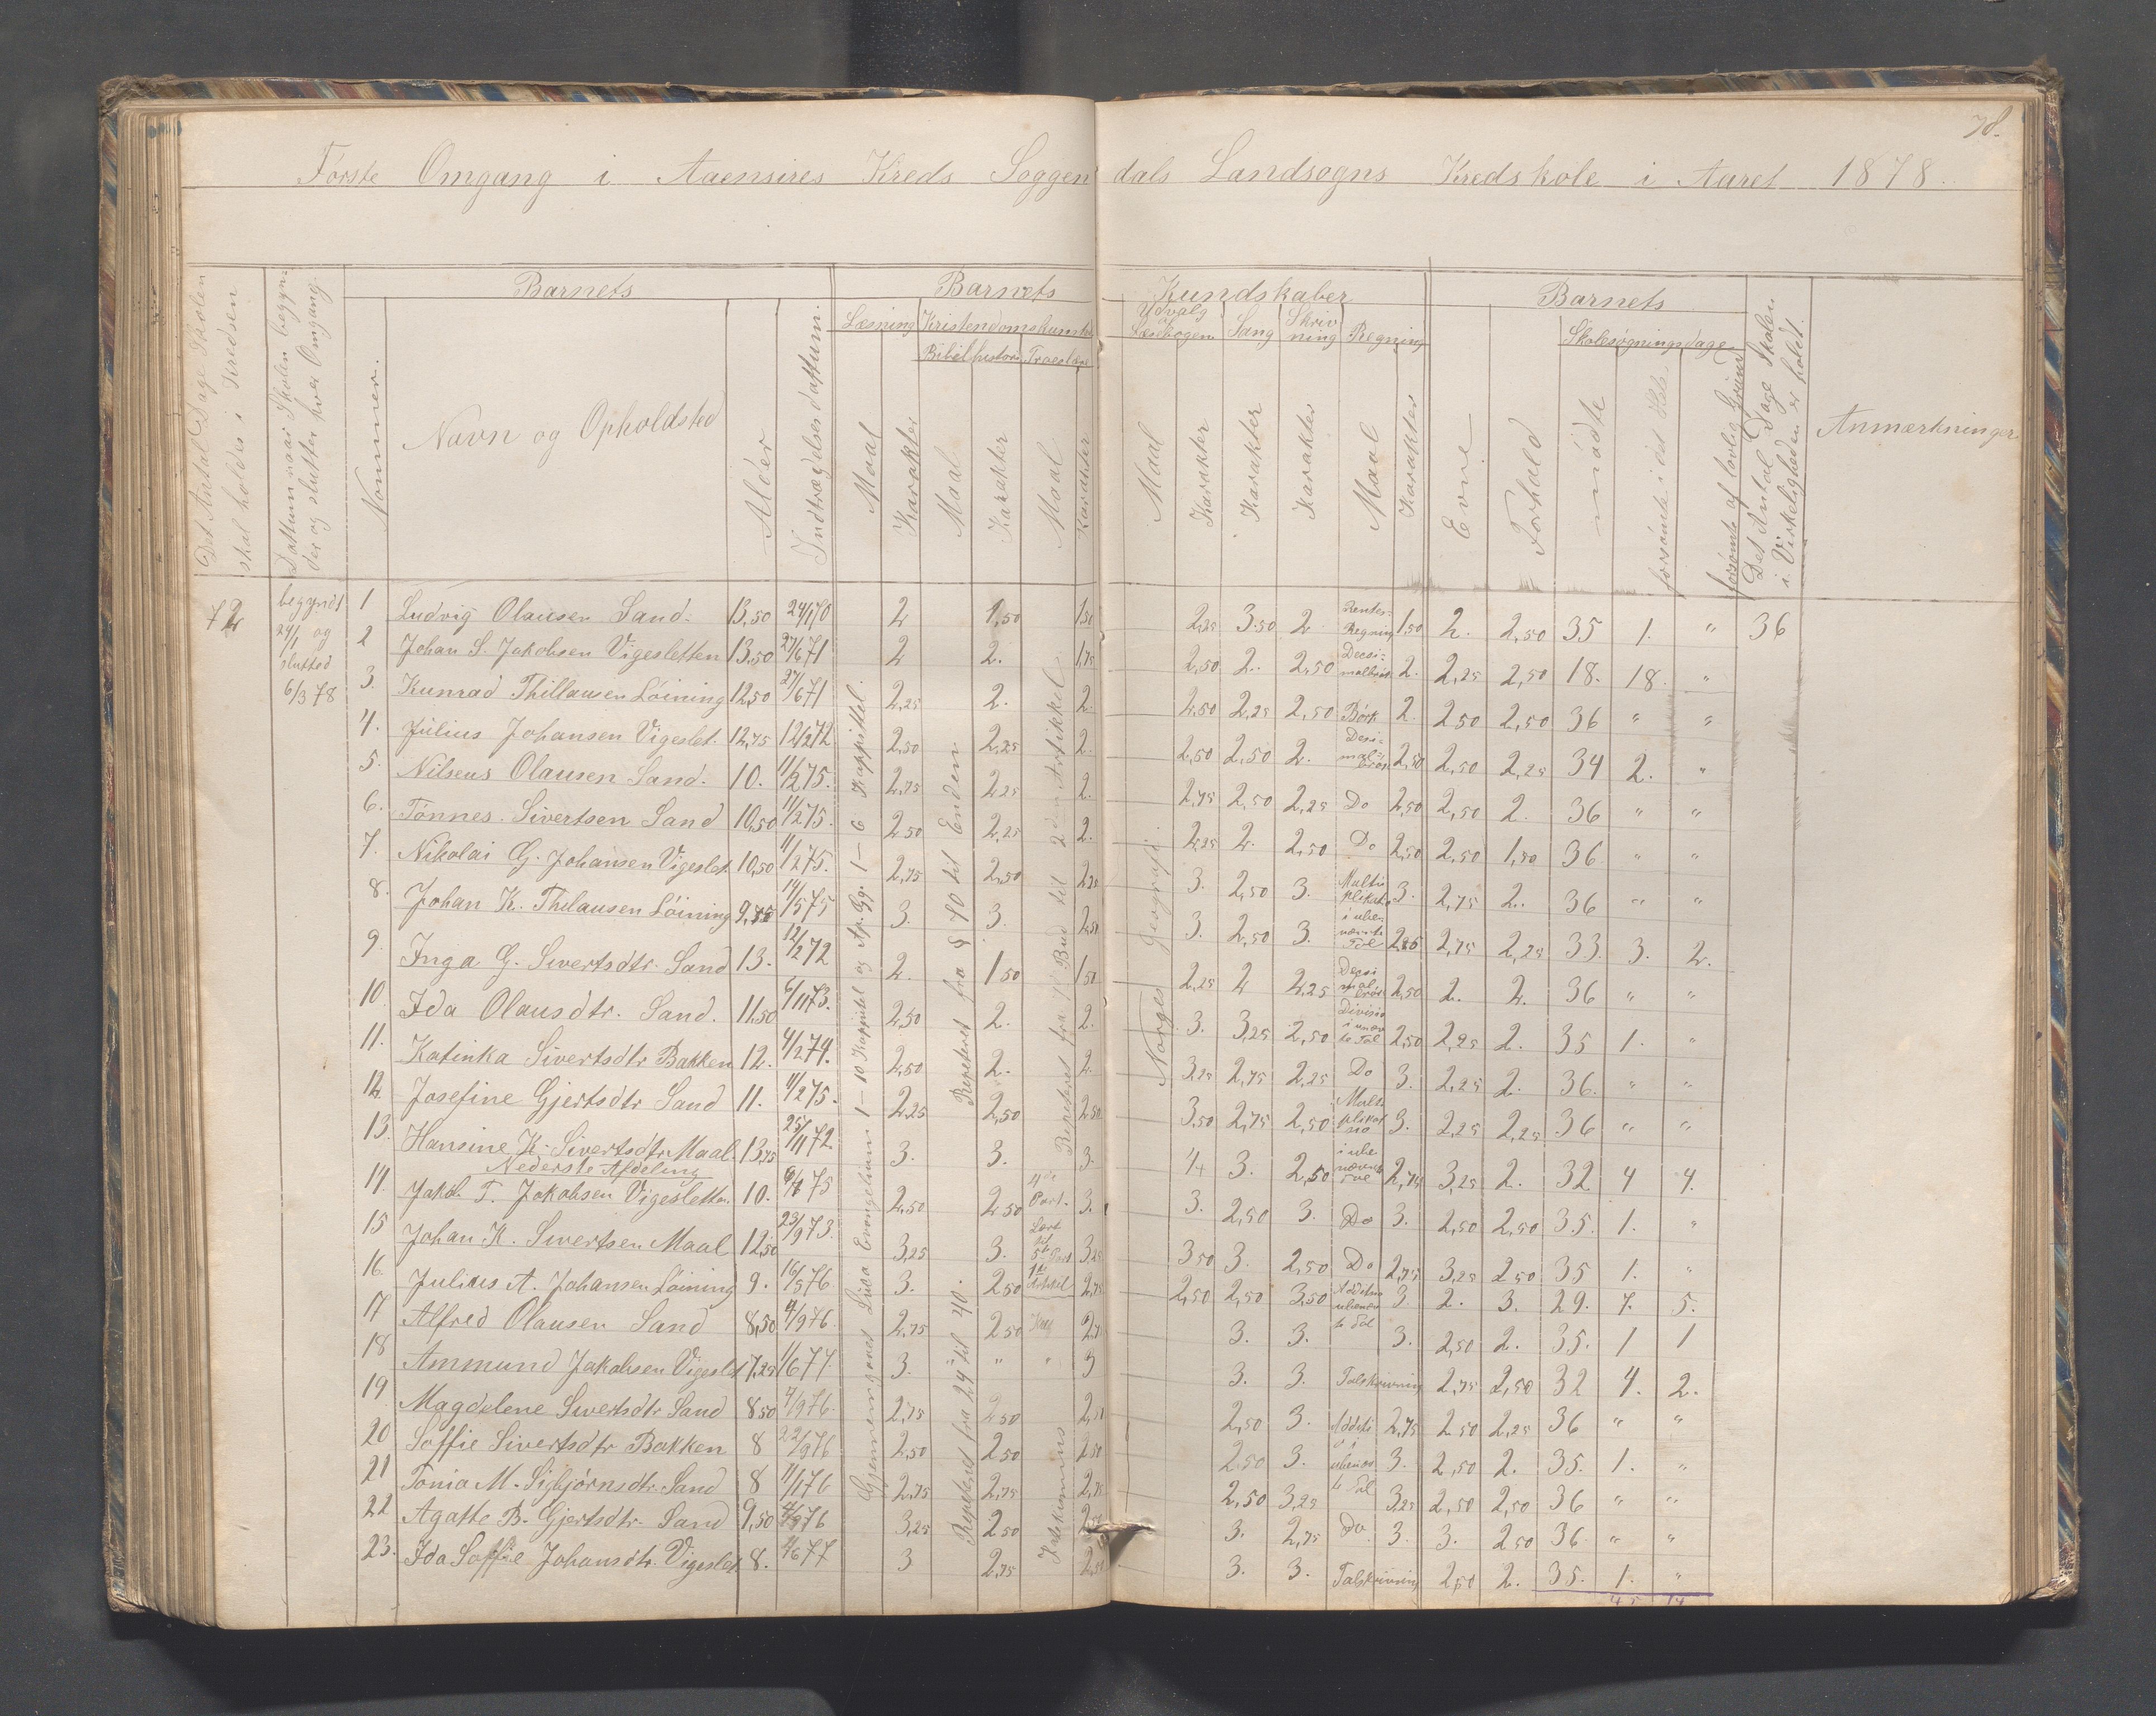 78.
Første Omgang i Aaensires Kreds Soggendals Landsogns Kredskole i Aaret 1878.
Det Antal Dage Skolen skal holdes i Kredsen
Dattum naar Skolen begynder og slutter hver Omgang.
Nommer.
Barnets
Navn og Opholdsted
Alder
Indtrædelsesdattum.
Barnets Kundskaber
Læsning Kristendomskundskab
Bibelhistorie
Maal Karakter Maal Karakter Maal Karakter
Udvalg af Læsebogen Sang Skrivning Regning
Maal Karakter Karakter Karakter Maal Karakter
Barnets
Evne Forhold
Skolesøgningsdage
mødte forsømte i det Hele forsømte af lovlig Grund
Det Antal Dage Skolen i Virkeligheden er holdt.
Anmærkninger
72 begyndt 24/1 og sluttet 6/3 78
1 Ludvig Olausen Sand. 13,50 24/1 70 2 1,50 1,50 2,25 3.50 2 Renter-Regning 1,50 2. 2,50 35 1. " 36
2 Johan S. Jakobsen Vigesletten 13,50 27/6 71 2 2. 1,75 2,50 2. 2,50 Decimalbrøk 2. 2,25 2,50 18. 18. "
3. Kunrad Thillausen Løining 12,50 27/6 71 2,25 2. 2. 2,50 2,25 2,50 Brøk 2. 2,50 2,50 36 " "
4. Julius Johansen Vigeslet. 12,75 12/2 72 2,50 2,25 2. 2,50 2,50 2. Desimalbrøk 2,50 2,50 2,25 34 2. "
5. Nilseus Olausen Sand. 10. 11/2 75. 2,75 2,25 2. 2,75 2,50 2,25 Do 2,50 2,50 2. 36 " "
6. Tønnes. Sivertsen Sand 10,50 11/2 75. 2,50 2,25 2. 2,25 2. 2,50 Do 2,50 2,50 1,50 36 " "
7. Nikolai G. Johansen Vigeslet. 10,50 11/2 75. 2,75 2,50 2,25 3. 2,50 3. 3. 2,75 2. 36 " "
8. Johan K. Thilausen Løining 9,75 14/5 75 3. 3. 2,50 3. 2,50 3. 2,75 2,25 33. 3. 2.
9. Inga G. Sivertsdtr. Sand 13. 12/2 72 2. 1,50 1,50 2,25 2 2,25 Decimalbrøk 2,50 2. 2. 36 " "
10. Ida Olausdtr. Sand. 11.50 6/11 73. 2,50 2. 2. 3. 3,25 2,50 2,50 2,25 2. 35 1. "
11. Katinka Sivertsdtr Bakken 12. 4/2 74. 2,50 2. 2. 3,25 2,75 2,25 Do 3. 2,25 2. 36. " "
12. Josefine Gjertsdtr Sand 11. 11/2 75. 2,25 2,50 2,50 3,50 2,75 2,50 3. 2,25 2,25 36 " "
13. Hansine K. Sivertsdtr. Maal. 13,75 25/11 72. 3. 3. 3. 4 3. 2,50 2,75 3,25 2. 32 4 4.
Nederste Afdeling
14. Jakob T. Jakobsen Vigesletten 10. 75 2,50 2,50 Part. 3. 3. 2,50 3. Do 3. 2,50 2,50 35. 1. "
15 Johan K. Sivertsen Maal 12,50 23/9 73. 3,25 3. 5te Part 3,25 3,50 3. 2,50 Do 2,75 3,25 2,50 35 1. "
16 Julius A. Johansen Løining 9. 16/5 76 3. 2,50 2,75 2,50 2,50 3,50 3. 2. 3. 29. 7. 5.
17 Alfred Olausen Sand 8,50 4/9 76. 2,75 2,50 2,75 3. 3. 3. 2,50 2. 35. 1 1
18 Ammund Jakobsen Vigeslet 7,25 1/6 77. 3. " " 3 3. 3. Talskrivning 2,75 2,50 32 4. 2.
19 Magdelene Sivertsdtr Sand 8,50 4/9 76. 2,75 2,50 2,50 3. 2,75 2,50 2,25 36 " "
20 Soffie Sivertsdtr Bakken 8 22/9 76 2,50 2,50 2,50 2,50 3. 3. 2,50 2. 35. 1. "
21 Tonia M. Sigbjørnsdtr. Sand 8 11/1 76 2,75 2,75 2,75 2,50 3,25 3,25 2,50 2,50 36 " "
22 Agatte B. Gjertsdtr. Sand 9,50 76 3,25 2,50 3. 2,75 Do 3. 3. 2,50 36. " "
23. Ida Soffie Johansdtr. Vigeslet 8. 4/6 77 3 2,75 2,50 3. 3. Talskrivning 2,50 2. 35. 1. "
45 14
Gjennemgaaet Lukas Evangelium 1–10 Kappitel og Ap. Gj. 1–6 Kappittel.
Repeteret fra § 40 til Enden
Repeteret fra 24 til 40.
Repeteret fra 1ste Bud til 2den Artikkel
Katekismus
Norges geografi.